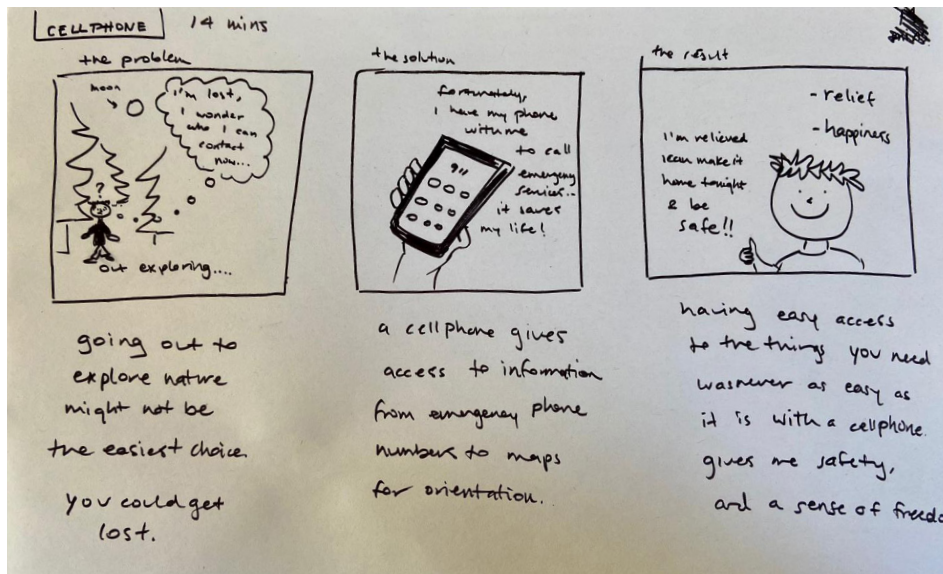 CELLPHONE
14 mins
the problem
moon
I'm lost,
I wonder
who I can
contact
now...
?
out exploring....
going out to
explore nature
might not be
the easiest choice.
you could get
lost.
the solution
fortunately,
I have my phone
with me
to call
emergency
services..
it saves
my life!
911
a cellphone gives
access to information
from emergency phone
numbers to maps
for orientation.
the result
- relief
- happiness
I'm relieved
I can make it
home tonight
& be
safe!!
having easy access
to the things you need
was never as easy as
it is with a cellphone.
gives me safety,
and a sense of freedo